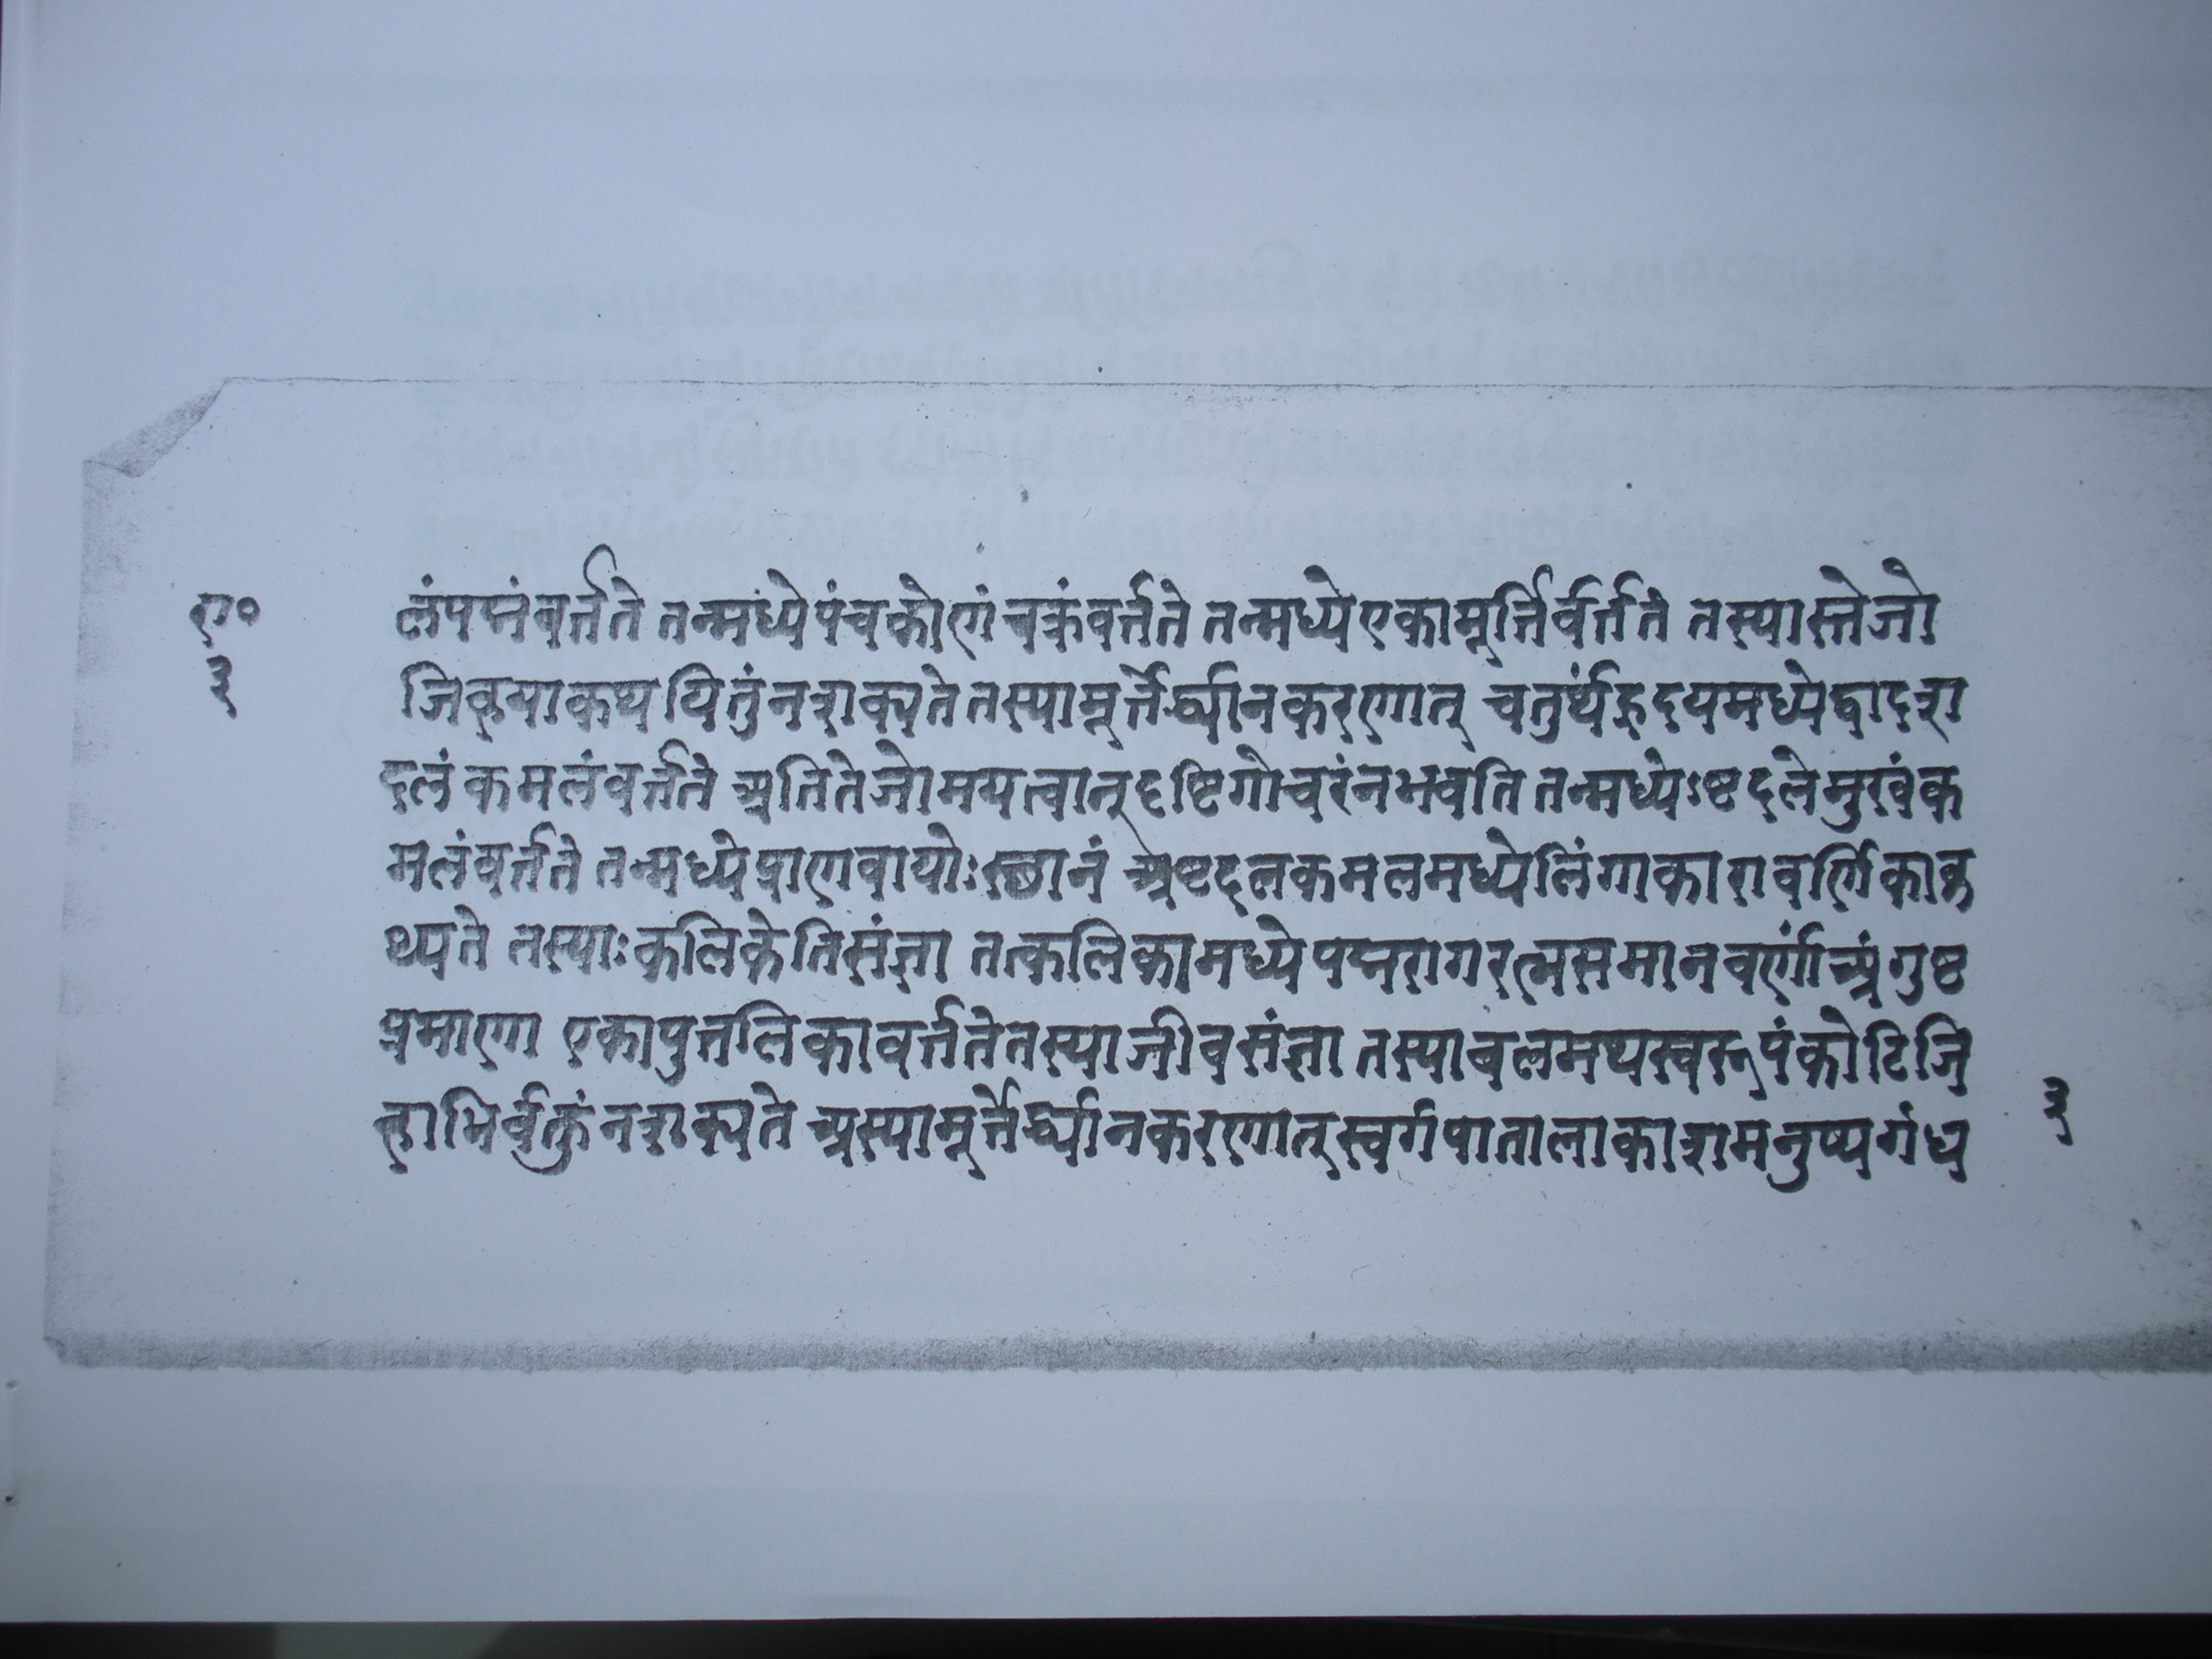 रा०
३
लंपद्मंवर्त्तते तन्मध्येपंचकोणंचक्रंवर्त्तते तन्मध्येएकामूर्त्तिर्वर्त्तते तस्यास्तेजो
जिह्वयाकथयितुंनशक्यतेतस्यामूर्त्तेर्द्ध्यानकरणात् चतुर्थंहृदयमध्येद्वादश
दलंकमलंवर्त्तते अतितेजोमयत्वात्दृष्टिगोचरंनभवति तन्मध्येऽष्टदलेमुखंक
मलंवर्त्तते तन्मध्येप्राणवायोःस्थानं अष्टदलकमलमध्येलिंगाकारावर्त्तिकाक
थ्यते तस्याःकलिकेतिसंज्ञा तत्कलिकामध्येपद्मरागरत्नसमानवर्णांअंगुष्ठ
प्रमाणा एकापुत्तलिकावर्त्ततेतस्याजीवसंज्ञा तस्याबलमथस्वरूपंकोटिजि
ह्वाभिर्वक्तुंनशक्यते अस्यामूर्त्तेर्द्ध्यानकरणात्स्वर्गपातालाकाशमनुष्यगंध
३